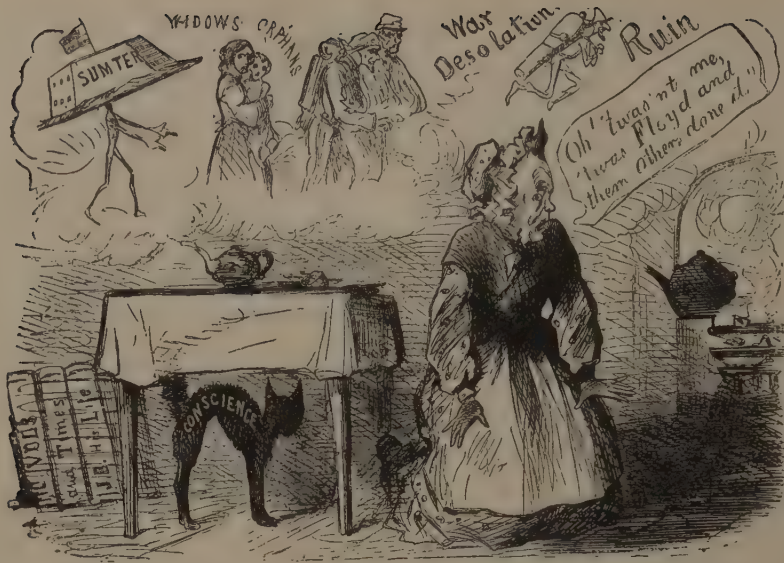 WIDOWS ORPHANS
War
Desolation.
Ruin
SUMTER
Oh! 'twas'nt me,
'twas Floyd and
them others done it."
CONSCIENCE
VOLS
and Times
J.B. His Life